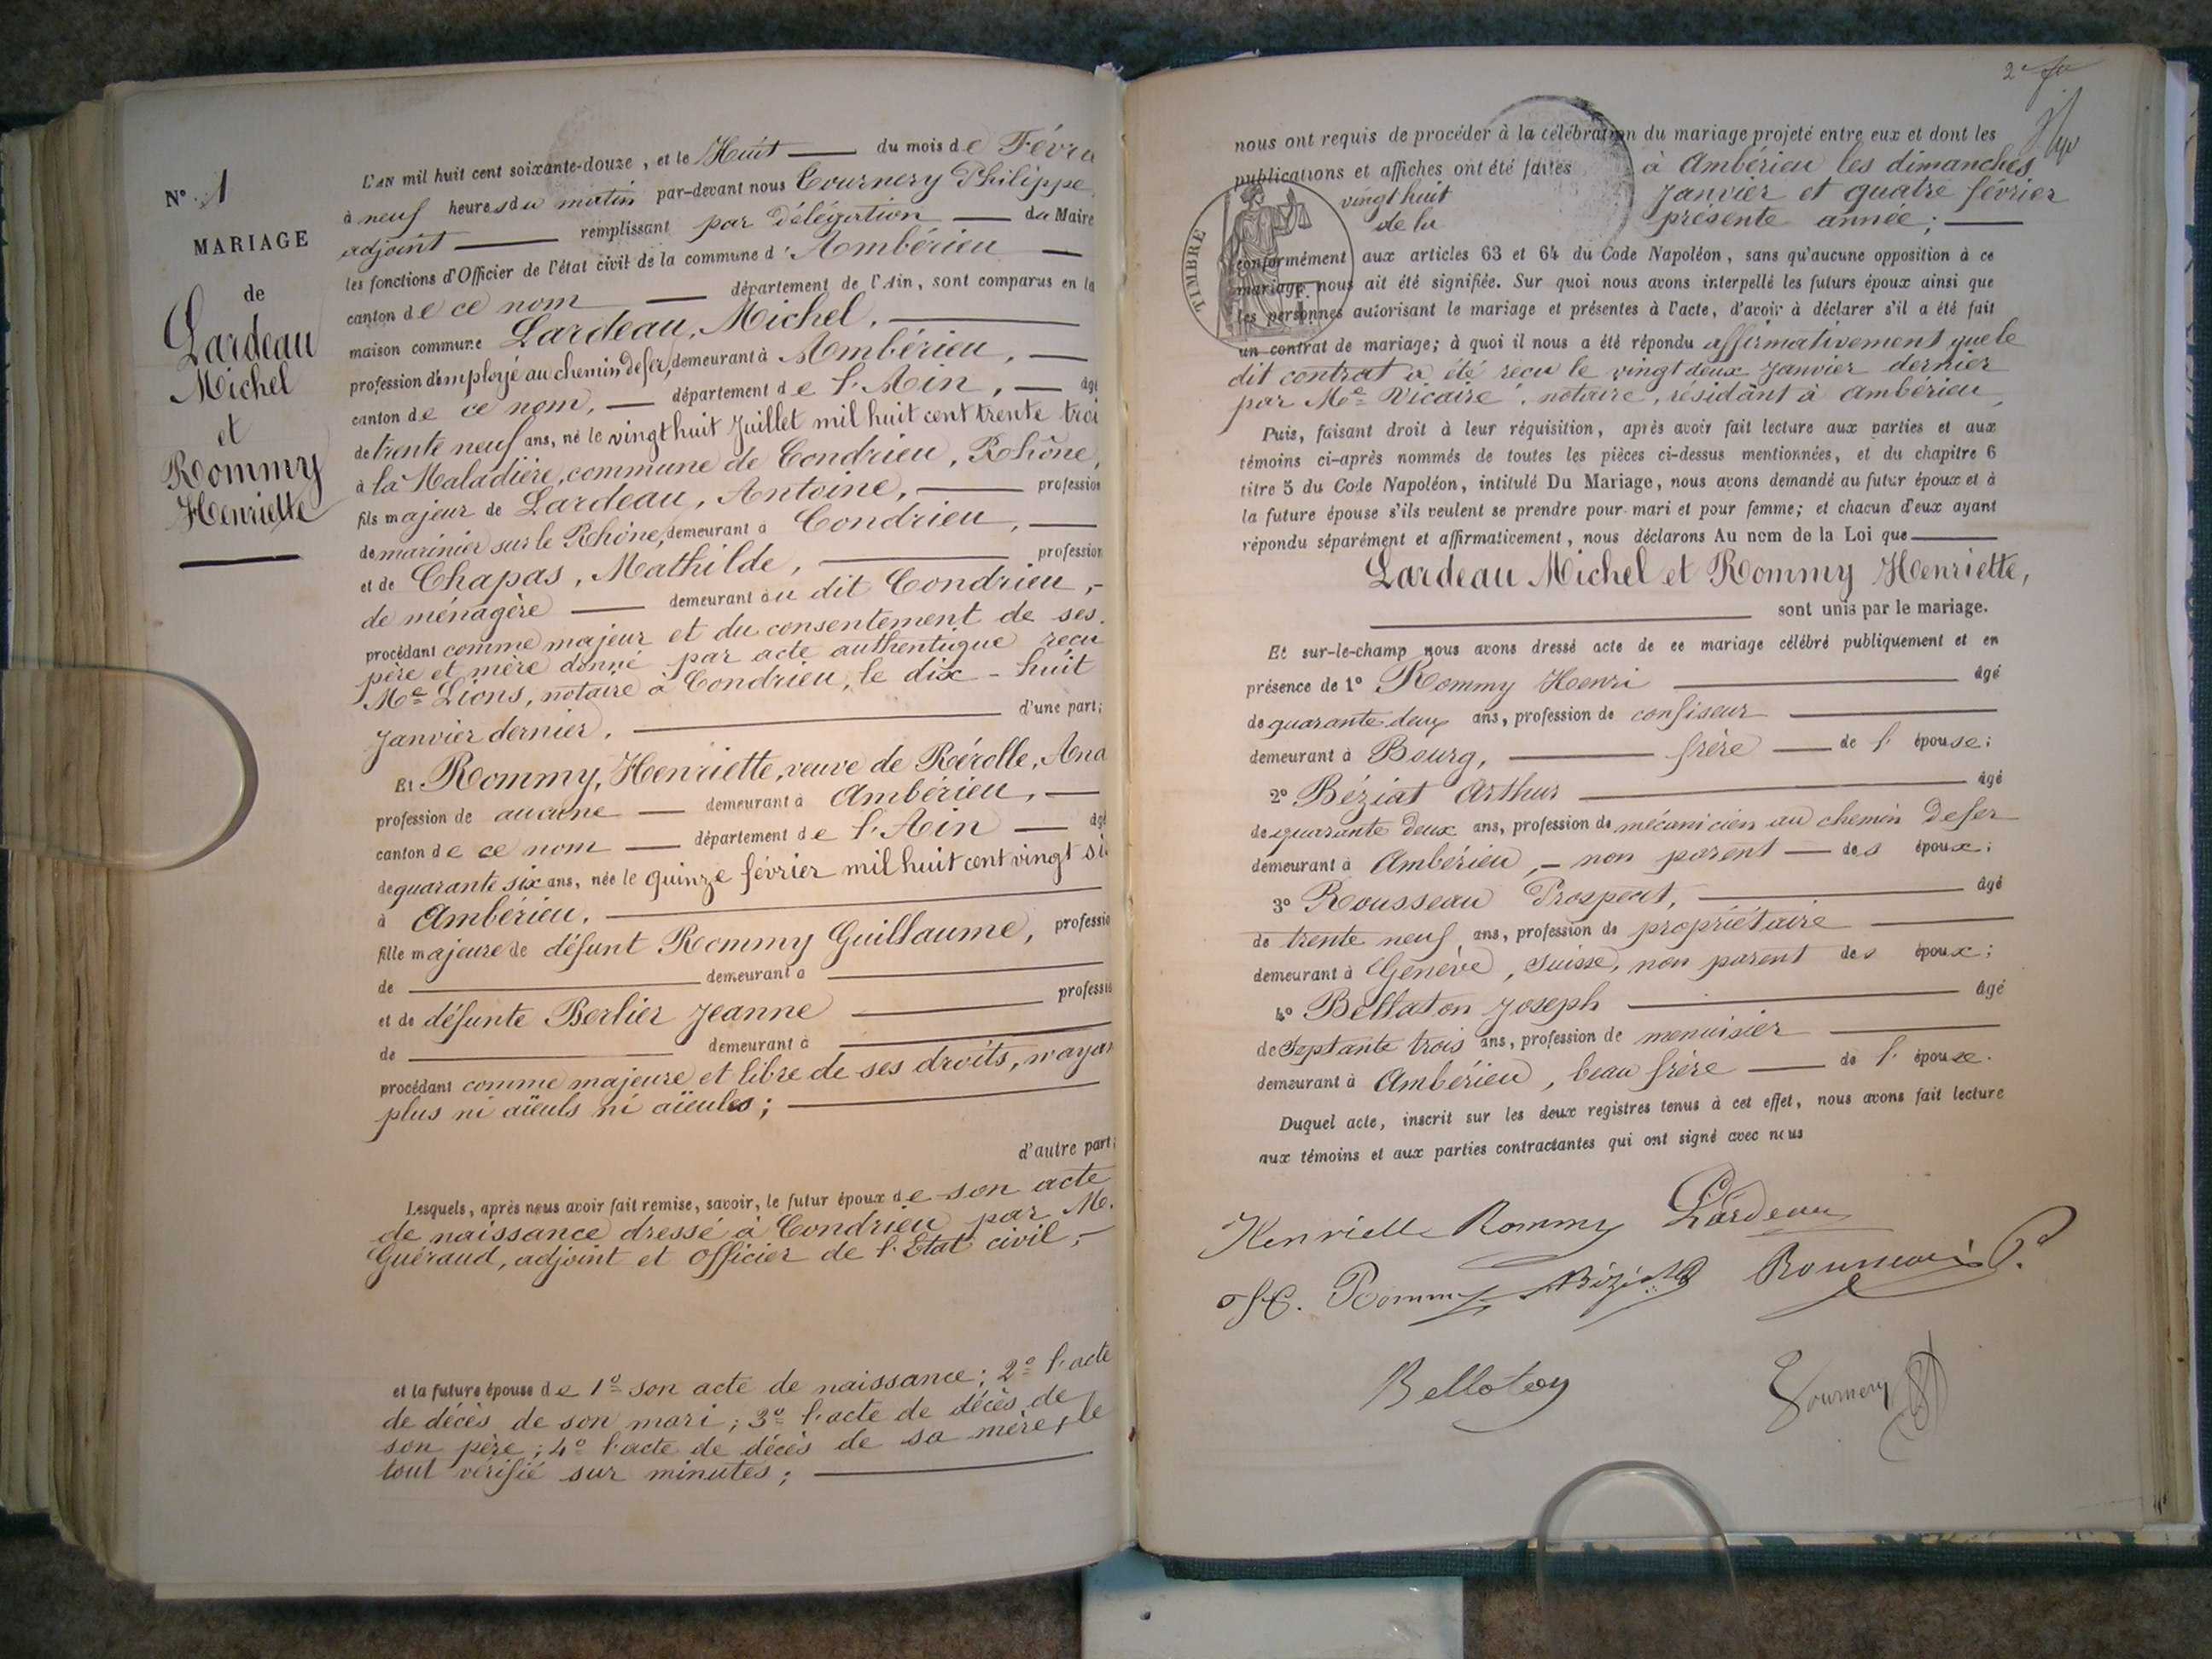 N° 1
MARIAGE
de
Lardeau
Michel
et
Rommy
Henriette
L'AN mil huit cent soixante-douze, et le Huit du mois de Févri
à neuf heures du matin par-devant nous Tournery Philippe
adjoint remplissant par délégation du Maire
les fonctions d'Officier de l'état civil de la commune d'Ambérieu
canton de ce nom département de l'Ain, sont comparus en la
maison commune Lardeau, Michel,
profession d'employé au chemin de fer, demeurant à Ambérieu,
canton de ce nom, département de l'Ain, âgé
de trente neuf ans, né le vingt huit Juillet mil huit cent trente troi
à la Maladière, commune de Condrieu, Rhône,
fils majeur de Lardeau, Antoine, profession
de marinier sur le Rhône, demeurant à Condrieu,
et de Chapas, Mathilde, profession
de ménagère demeurant au dit Condrieu,
procédant comme majeur et du consentement de ses
père et mère donné par acte authentique reçu
Me Lions, notaire à Condrieu, le dix-huit
Janvier dernier, d'une part;
Et Rommy, Henriette, veuve de Rérolle, And
profession de aucune demeurant à Ambérieu,
canton de ce nom département de l'Ain âgé
de quarante six ans, née le quinze février mil huit cent vingt si
à Ambérieu,
fille majeure de défunt Rommy Guillaume, professio
de demeurant à
et de défunte Berlier Jeanne professio
de demeurant à
procédant comme majeure et libre de ses droits, n'ayan
plus ni aïeuls ni aïeules;
d'autre part;
Lesquels, après nous avoir fait remise, savoir, le futur époux de son acte
de naissance dressé à Condrieu par M.
Guéraud, adjoint et officier de l'État civil,
et la future épouse de 1° son acte de naissance; 2° l'acte
de décès de son mari; 3° l'acte de décès de
son père; 4° l'acte de décès de sa mère, le
tout vérifié sur minutes;
2e
nous ont requis de procéder à la célébration du mariage projeté entre eux et dont les
publications et affiches ont été faites à Ambérieu les dimanches
vingt huit Janvier et quatre février
de la présente année;
TIMBRE
conformément aux articles 63 et 64 du Code Napoléon, sans qu'aucune opposition à ce
mariage nous ait été signifiée. Sur quoi nous avons interpellé les futurs époux ainsi que
les personnes autorisant le mariage et présentes à l'acte, d'avoir à déclarer s'il a été fait
un contrat de mariage; à quoi il nous a été répondu affirmativement que le
dit contrat a été reçu le vingt deux Janvier dernier
par Me Vicaire, notaire, résidant à Ambérieu,
Puis, faisant droit à leur réquisition, après avoir fait lecture aux parties et aux
témoins ci-après nommés de toutes les pièces ci-dessus mentionnées, et du chapitre 6
titre 5 du Code Napoléon, intitulé Du Mariage, nous avons demandé au futur époux et à
la future épouse s'ils veulent se prendre pour mari et pour femme; et chacun d'eux ayant
répondu séparément et affirmativement, nous déclarons Au nom de la Loi que
Lardeau Michel et Rommy Henriette,
sont unis par le mariage.
Et sur-le-champ nous avons dressé acte de ce mariage célébré publiquement et en
présence de 1° Rommy Henri âgé
de quarante deux ans, profession de confiseur
demeurant à Bourg, frère de l'épouse;
2° Béziat Arthur âgé
de quarante deux ans, profession de mécanicien au chemin de fer
demeurant à Ambérieu, non parent des époux;
3° Rousseau Prospert, âgé
de trente neuf ans, profession de propriétaire
demeurant à Genève, Suisse, non parent des époux;
4° Bellaton Joseph âgé
de septante trois ans, profession de menuisier
demeurant à Ambérieu, beau frère de l'épouse.
Duquel acte, inscrit sur les deux registres tenus à cet effet, nous avons fait lecture
aux témoins et aux parties contractantes qui ont signé avec nous
Henriette Rommy Lardeau
H. Rommy Béziat
Bellaton Tournery